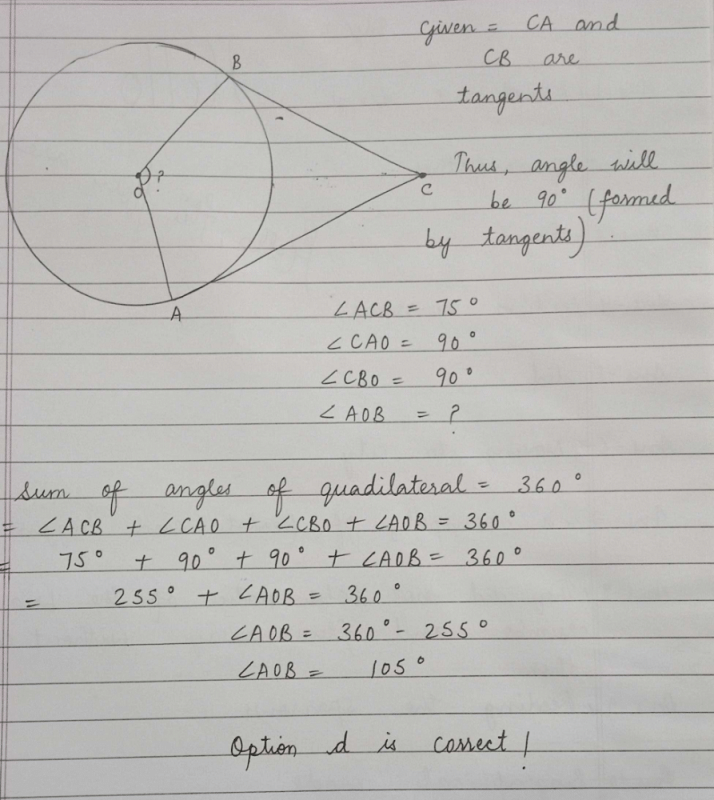 Given = CA and
CB are
tangents
B
O
?
C
A
Thus, angle will
be 90° (formed
by tangents).
∠ACB = 75°
∠CAO = 90°
∠CBO = 90°
∠AOB = ?
Sum of angles of quadilateral = 360°
= ∠ACB + ∠CAO + ∠CBO + ∠AOB = 360°
= 75° + 90° + 90° + ∠AOB = 360°
= 255° + ∠AOB = 360°
∠AOB = 360° - 255°
∠AOB = 105°
Option d is correct!